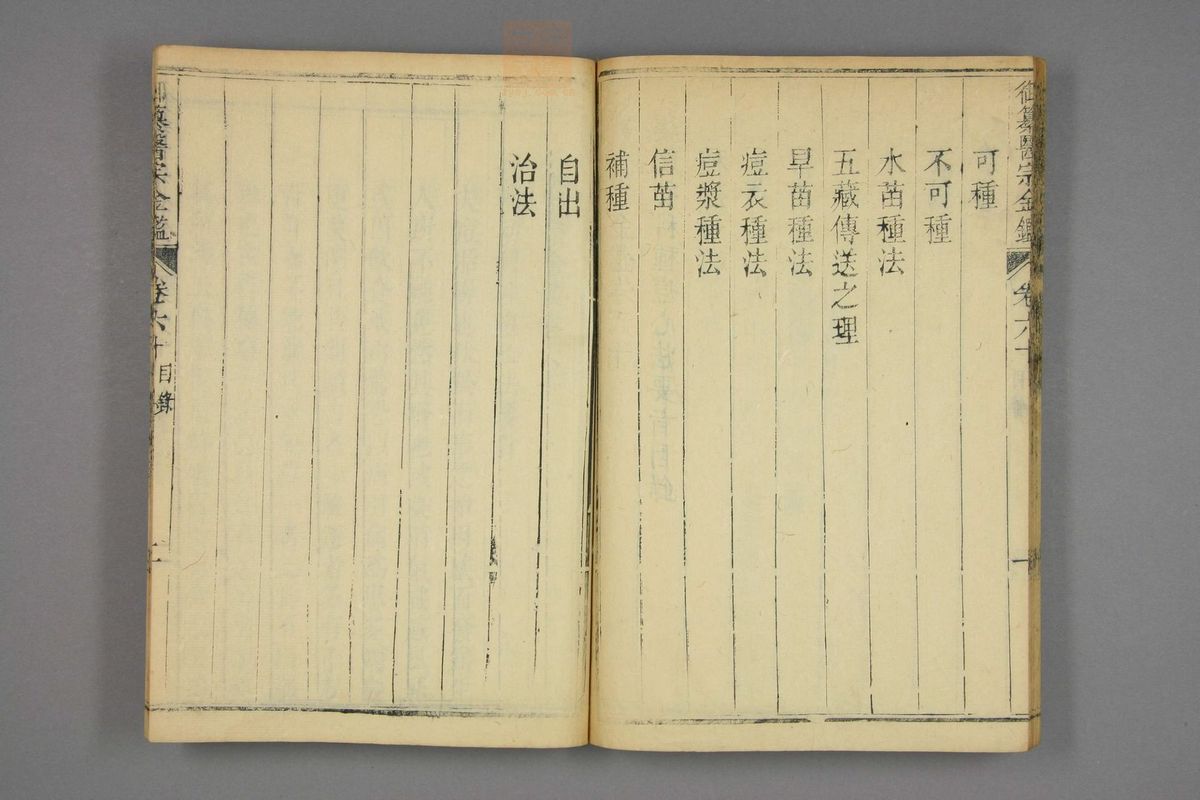 御纂醫宗金鑑 卷六十 一
可種
不可種
水苗種法
五藏傳送之理
旱苗種法
痘衣種法
痘漿種法
信苗
補種
自出
治法
御纂醫宗金鑑 卷六十 目錄 二